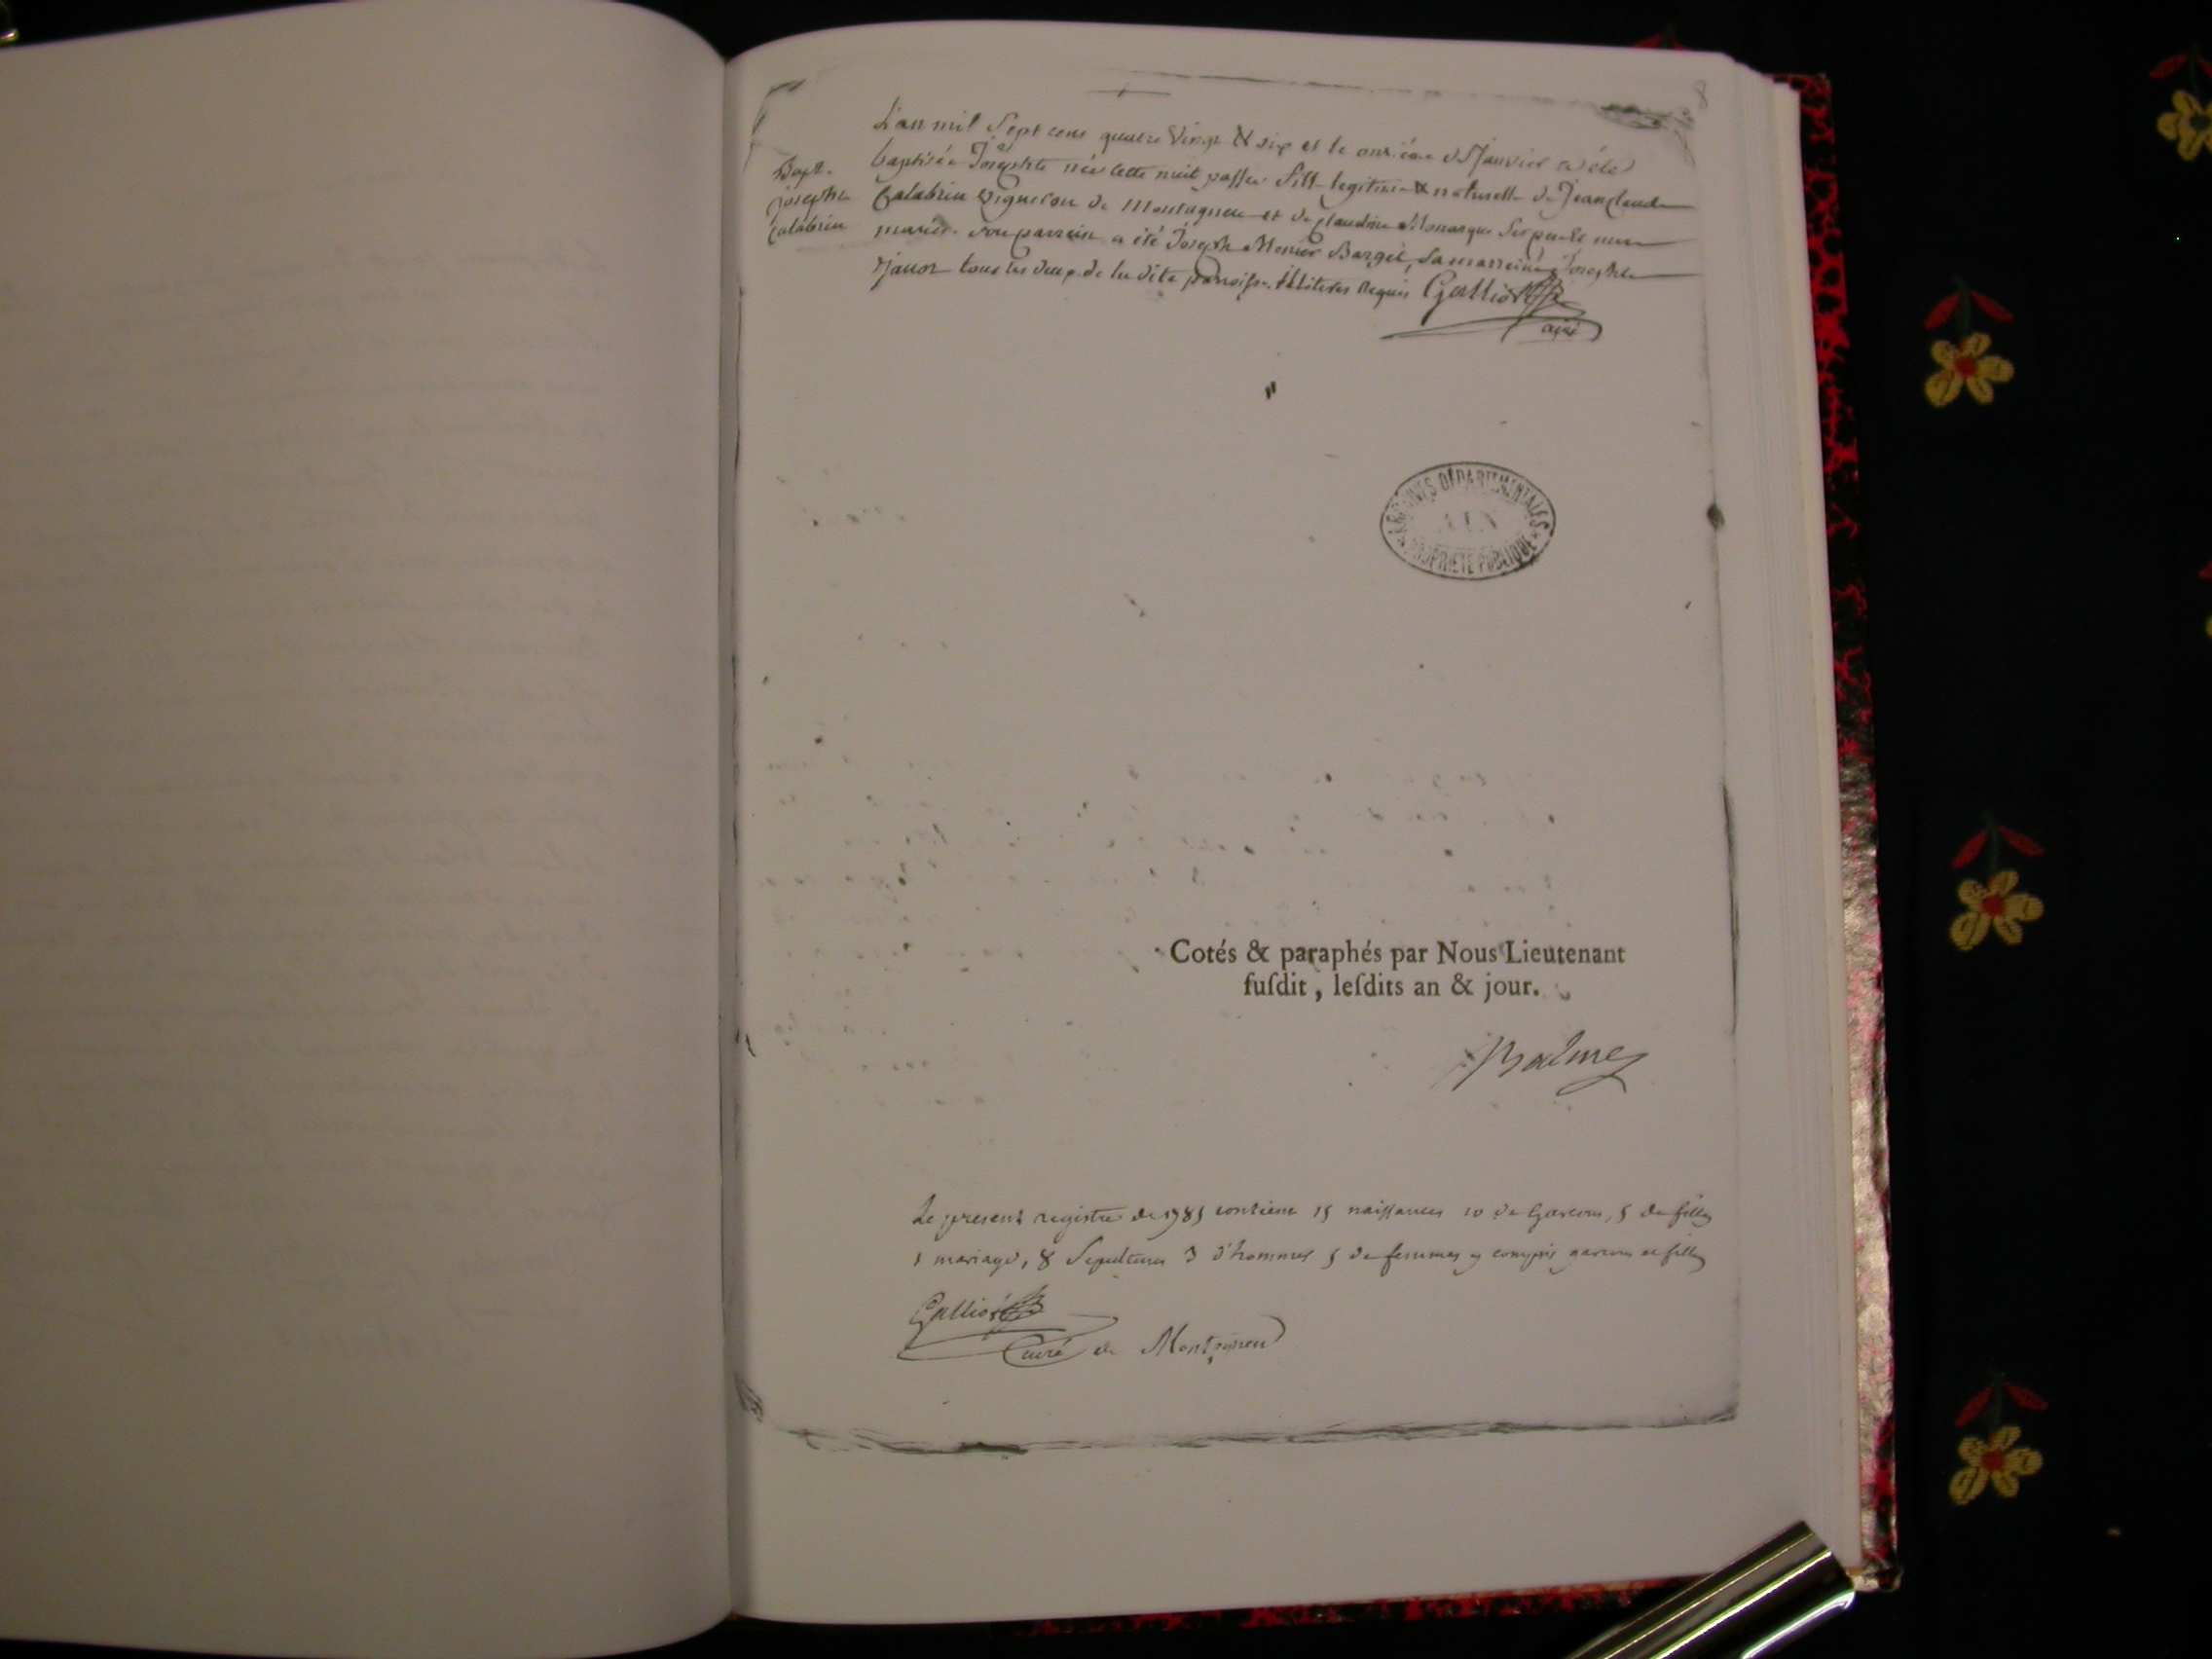 8
L'an mil Sept cens quatre Vingt & six et le onzième de Janvier a été
Bapt.
josephe
Calabrin
baptisée Josephte née cette nuit passée fille legitime & naturelle de Jean Claude
Calabrin Vigneron de Montagneu et de Claudine Monarque ses père & mere
mariés. son parrain a été Joseph Monier Barget, Sa marreine Josephte
Janot tous les deux de la dite paroisse. Illiteres Requis Galliot
curé
ARCHIVES DÉPARTEMENTALES
AIN
PROPRIÉTÉ PUBLIQUE
Cotés & paraphés par Nous Lieutenant
fuſdit, leſdits an & jour.
Balme
Le present registre de 1785 contient 15 naissances 10 de Garcons, 5 de filles
1 mariage, 8 Sepultures 3 d'hommes 5 de femmes y compris garcons et filles
Galliot
Curé de Montagneu